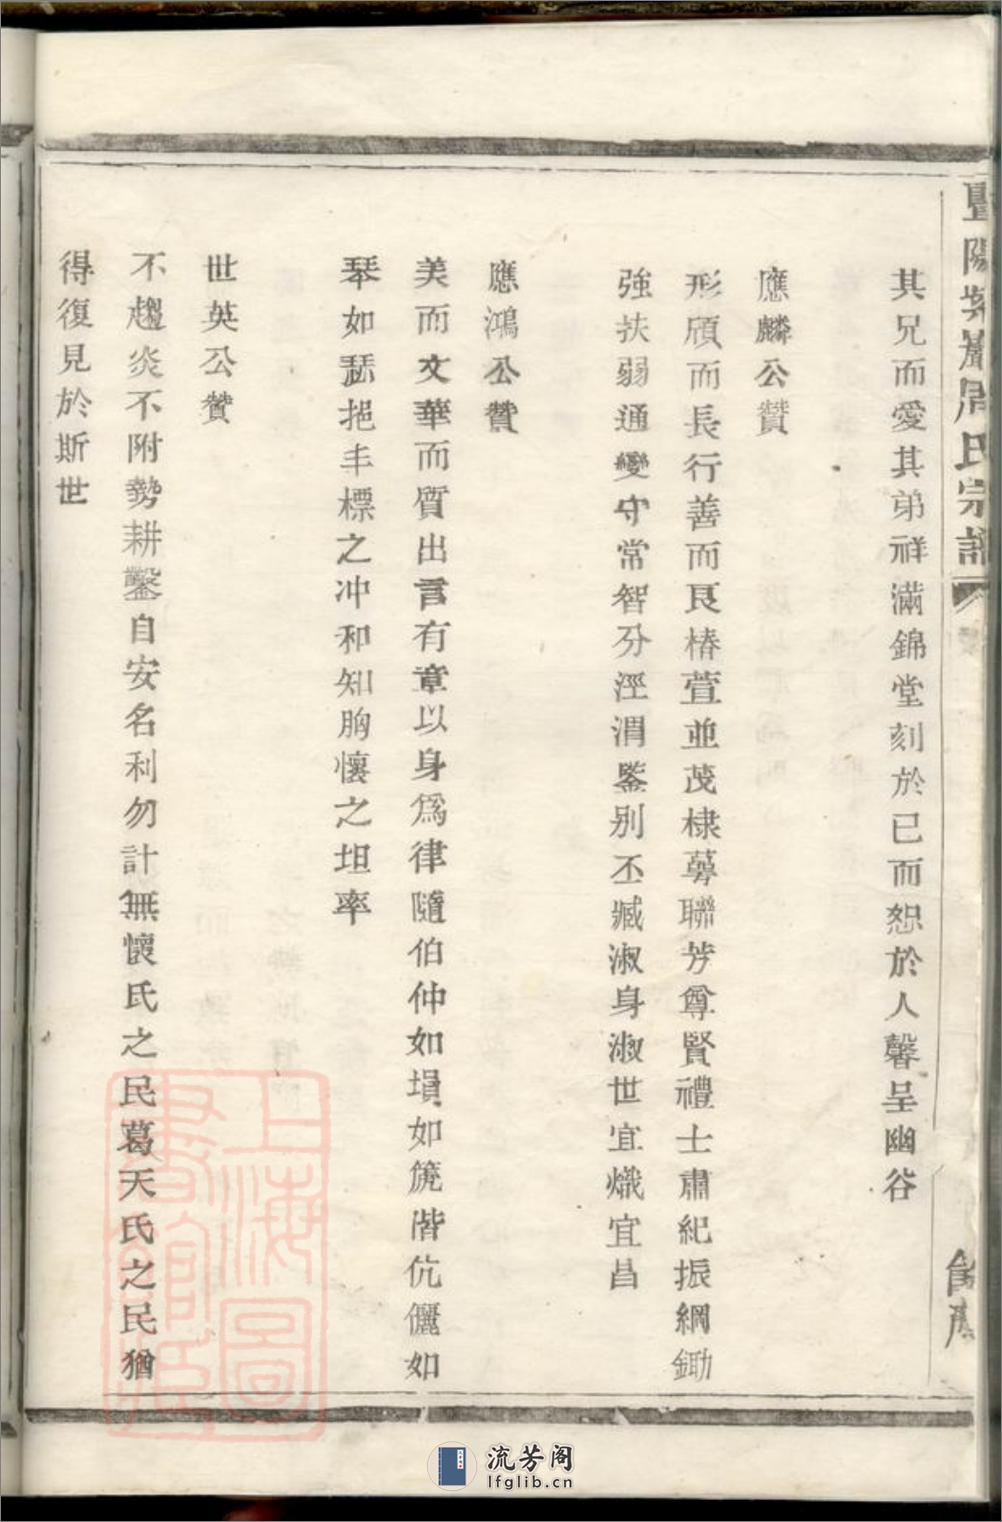 暨陽紫巖周氏宗譜
其兄而愛其弟祥滿錦堂刻於已而恕於人馨呈幽谷
應麟公贊
形頎而長行善而良椿萱並茂棣萼聯芳尊賢禮士肅紀振綱鋤
強扶弱通變守常智分涇渭鑒别丕臧淑身淑世宜熾宜昌
應鴻公贊
美而文華而質出言有章以身爲律隨伯仲如塤如篪偕伉儷如
琴如瑟挹丰標之冲和知胸懷之坦率
世英公贊
不趨炎不附勢耕鑿自安名利勿計無懷氏之民葛天氏之民猶
得復見於斯世
上海圖
書館藏
流芳阁
lfglib.cn